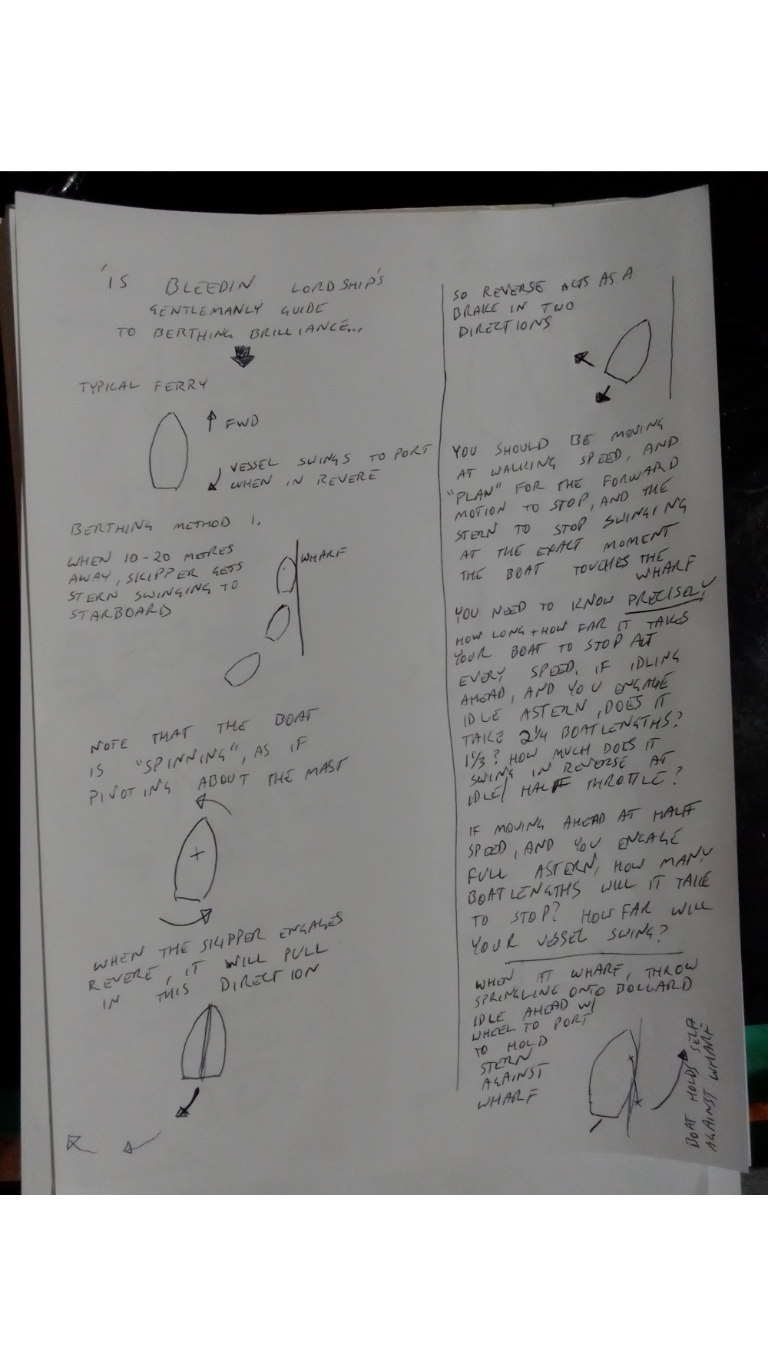 'IS BLEEDIN LORDSHIP'S
GENTLEMANLY GUIDE
TO BERTHING BRILLIANCE...
TYPICAL FERRY
FWD
VESSEL SWINGS TO PORT
WHEN IN REVERE
BERTHING METHOD 1.
WHEN 10-20 METRES
AWAY, SKIPPER GETS
STERN SWINGING TO
STARBOARD
WHARF
NOTE THAT THE BOAT
IS "SPINNING", AS IF
PIVOTING ABOUT THE MAST
WHEN THE SKIPPER ENGAGES
REVERE, IT WILL PULL
IN THIS DIRECTION
SO REVERSE ACTS AS A
BRAKE IN TWO
DIRECTIONS
YOU SHOULD BE MOVING
AT WALKING SPEED, AND
"PLAN" FOR THE FORWARD
MOTION TO STOP, AND THE
STERN TO STOP SWINGING
AT THE EXACT MOMENT
THE BOAT TOUCHES THE
WHARF
YOU NEED TO KNOW PRECISELY
HOW LONG + HOW FAR IT TAKES
YOUR BOAT TO STOP AT
EVERY SPEED. IF IDLING
AHEAD, AND YOU ENGAGE
IDLE ASTERN, DOES IT
TAKE 2 1/4 BOATLENGTHS?
1 1/3? HOW MUCH DOES IT
SWING IN REVERSE AT
IDLE/ HALF THROTTLE?
IF MOVING AHEAD AT HALF
SPEED, AND YOU ENGAGE
FULL ASTERN, HOW MANY
BOATLENGTHS WILL IT TAKE
TO STOP? HOW FAR WILL
YOUR VESSEL SWING?
WHEN AT WHARF, THROW
SPRINGLINE ONTO BOLLARD
IDLE AHEAD W/
WHEEL TO PORT
TO HOLD
STERN
AGAINST
WHARF
BOAT HOLDS SELF
AGAINST WHARF